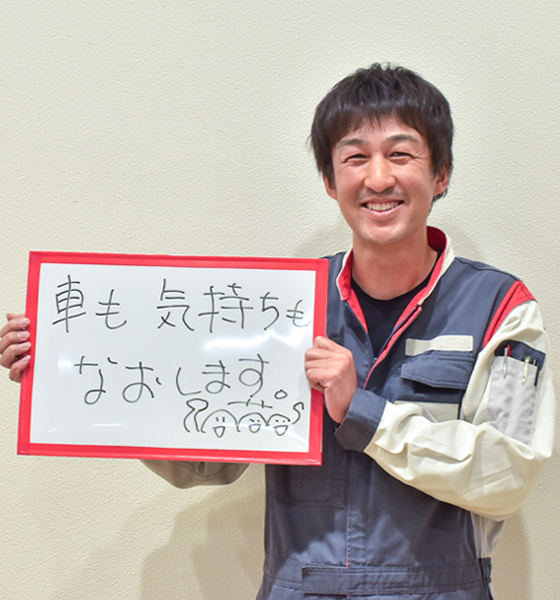 車も 気持ちも
なおします